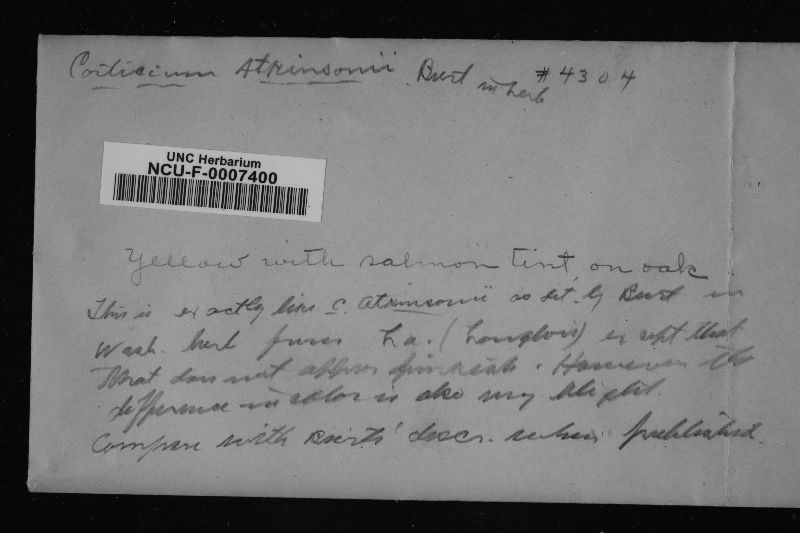 Corticium Atkinsonii Burt in herb #4304
UNC Herbarium
NCU-F-0007400
Yellow with salmon tint, on oak
This is exactly like C. Atkinsonii as det. by Burt in
Wash. herb from La. (Langlois) except that
that does not appear pinkish. However the
difference in color is also very slight.
Compare with Burts' descr. when published.